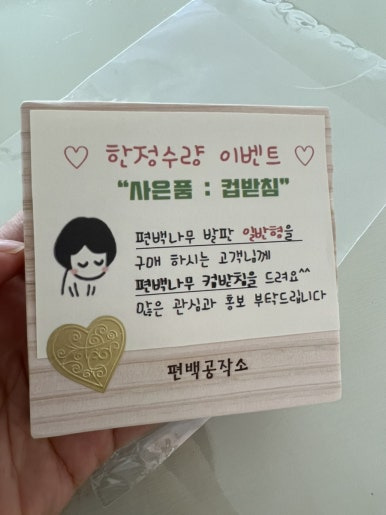 ♡ 한정수량 이벤트 ♡
“사은품 : 컵받침”
편백나무 발판 일반형을
구매 하시는 고객님께
편백나무 컵받침을 드려요^^
많은 관심과 홍보 부탁드립니다
편백공작소